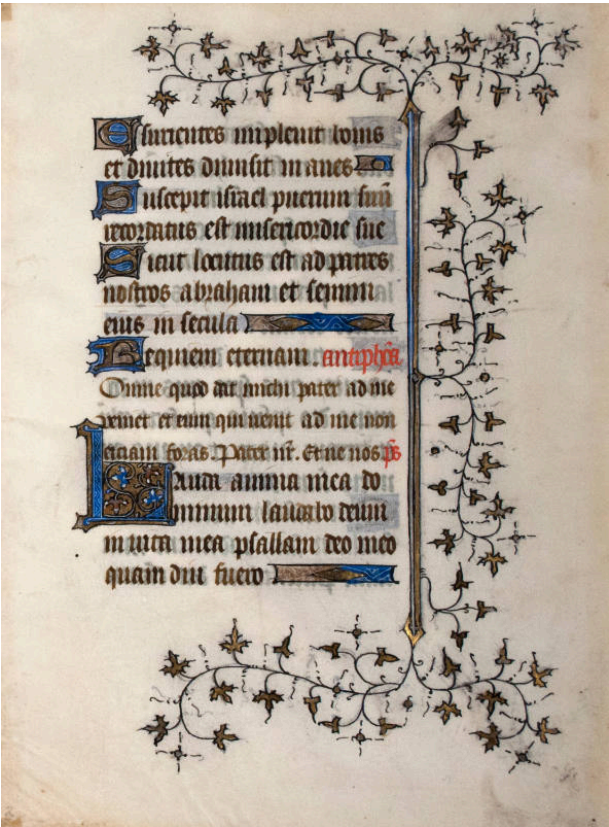 Esurientes impleuit bonis
et diuites dimisit inanes
Suscepit israel puerum suū
recordatus est misericordie sue
Sicut locutus est ad patres
nostros abraham et semini
eius in secula
Requiem eternam. antiphōa
Omne quod dat michi pater ad me
veniet et eum qui uenit ad me non
eiciam foras. Pater nr̄. Et ne nos ps̄
Lauda anima mea do
minum laudabo deum
in uita mea psallam deo meo
quam diu fuero